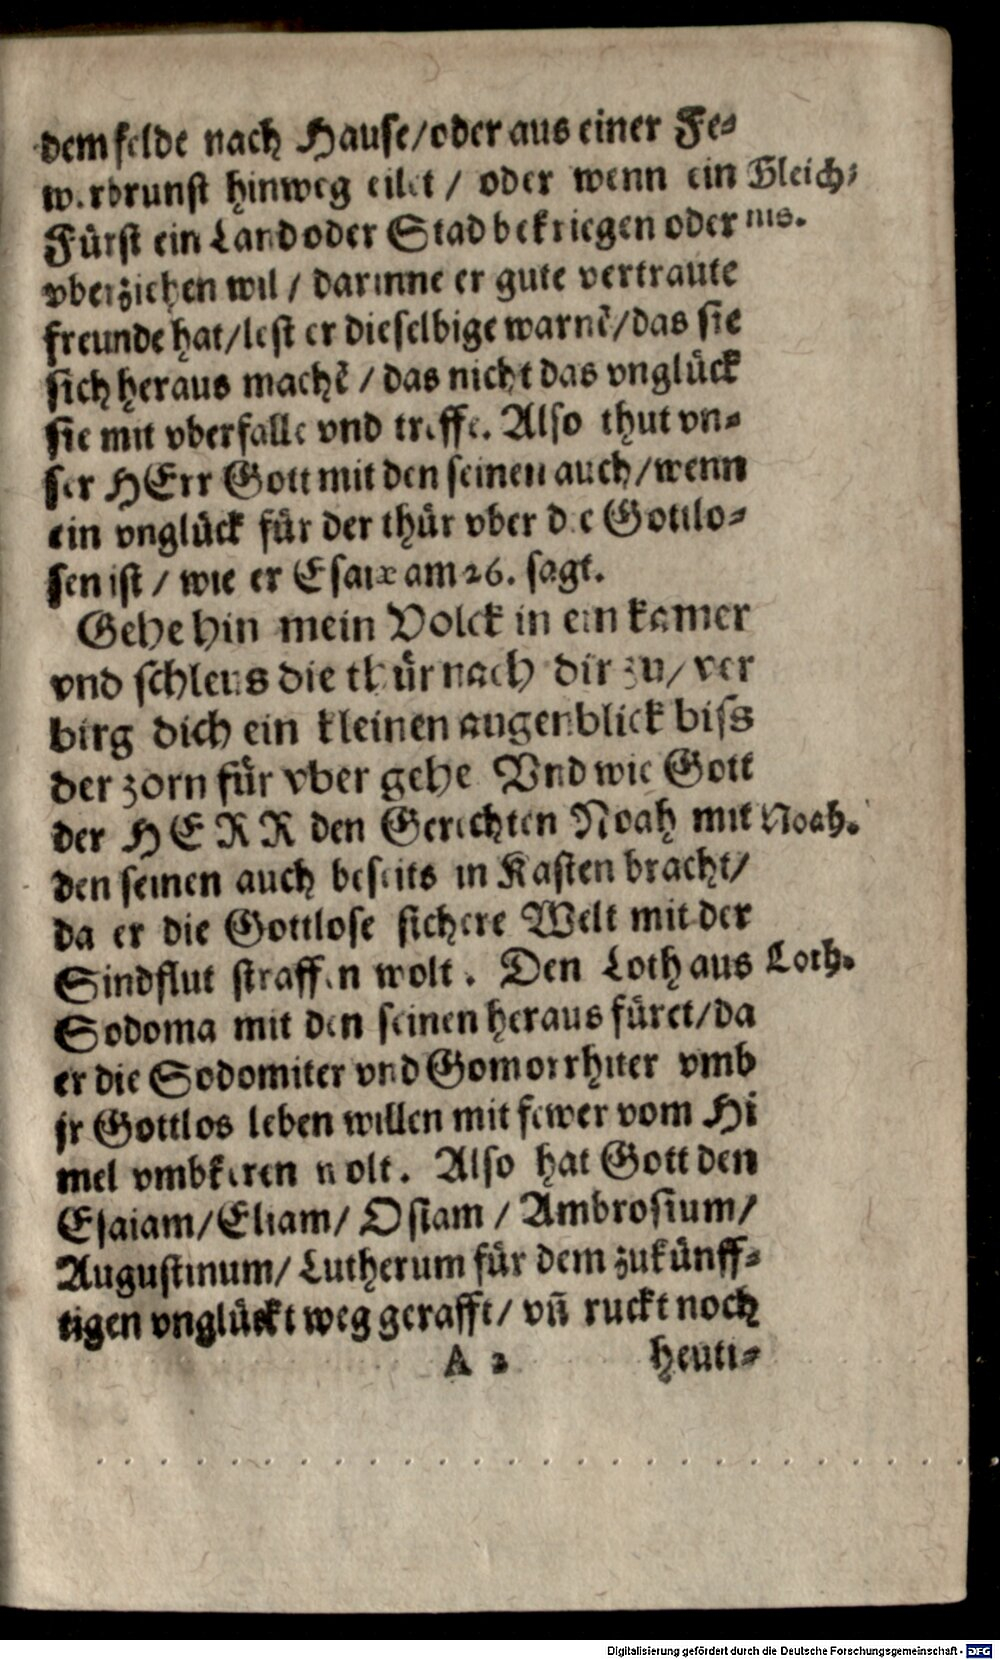 dem felde nach Hause/oder aus einer Fe-
werbrunst hinweg eilet / oder wenn ein Gleich-
Fürst ein Land oder Stad bekriegen oder nis.
vberziehen wil / darinne er gute vertraute
freunde hat/lest er dieselbige warnẽ/das sie
sich heraus machẽ / das nicht das vnglück
sie mit vberfalle vnd treffe. Also thut vn-
ser HErr Gott mit den seinen auch/wenn
ein vnglück für der thür vber die Gottlo-
sen ist / wie er Esaiæ am 26. sagt.
Gehe hin mein Volck in ein kamer
vnd schleus die thür nach dir zu/ ver
birg dich ein kleinen augenblick biss
der zorn für vber gehe Vnd wie Gott
der HERR den Gerechten Noah mit Noah.
den seinen auch beseits in Kasten bracht/
da er die Gottlose sichere Welt mit der
Sindflut straffen wolt. Den Loth aus Loth.
Sodoma mit den seinen heraus füret/da
er die Sodomiter vnd Gomorrhiter vmb
jr Gottlos leben willen mit fewer vom Hi
mel vmbkeren wolt. Also hat Gott den
Esaiam/Eliam/ Osiam / Ambrosium/
Augustinum/ Lutherum für dem zukünff-
tigen vnglückt weg gerafft/ vñ ruckt noch
A 2 heuti-
Digitalisierung gefördert durch die Deutsche Forschungsgemeinschaft - DFG